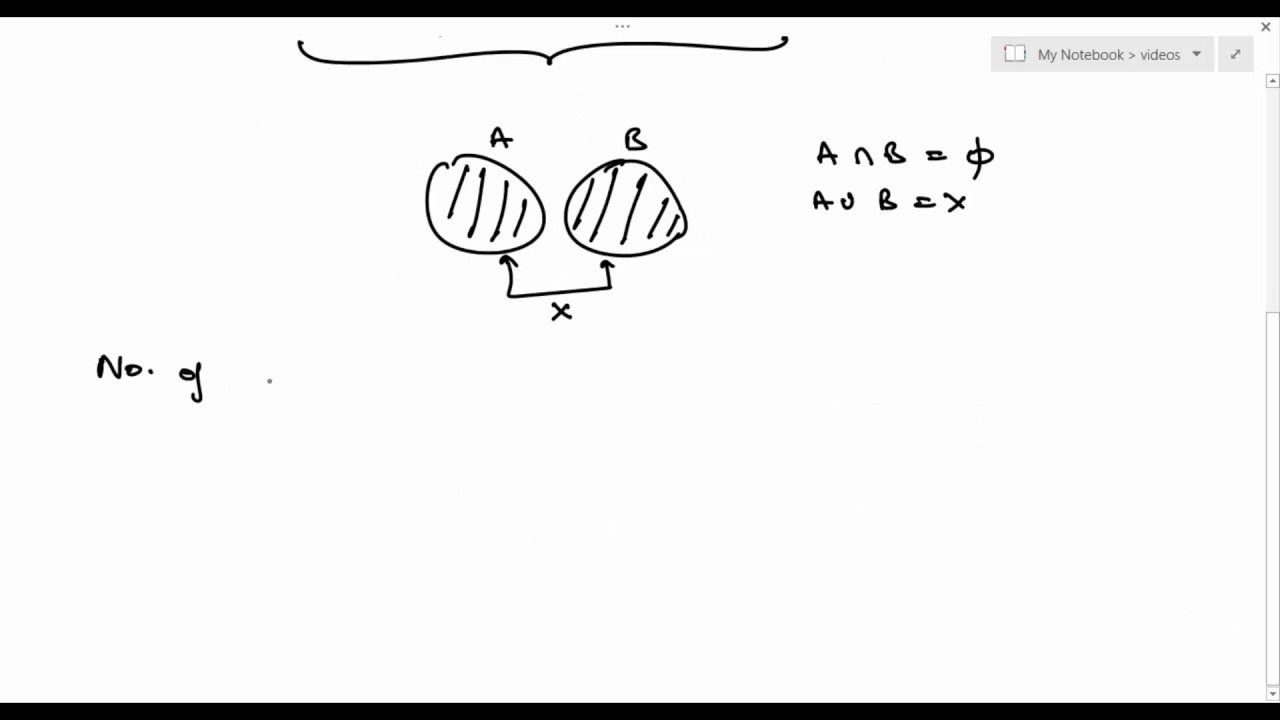 ...
My Notebook > videos
A B
A ∩ B = ϕ
A ∪ B = x
x
No. of